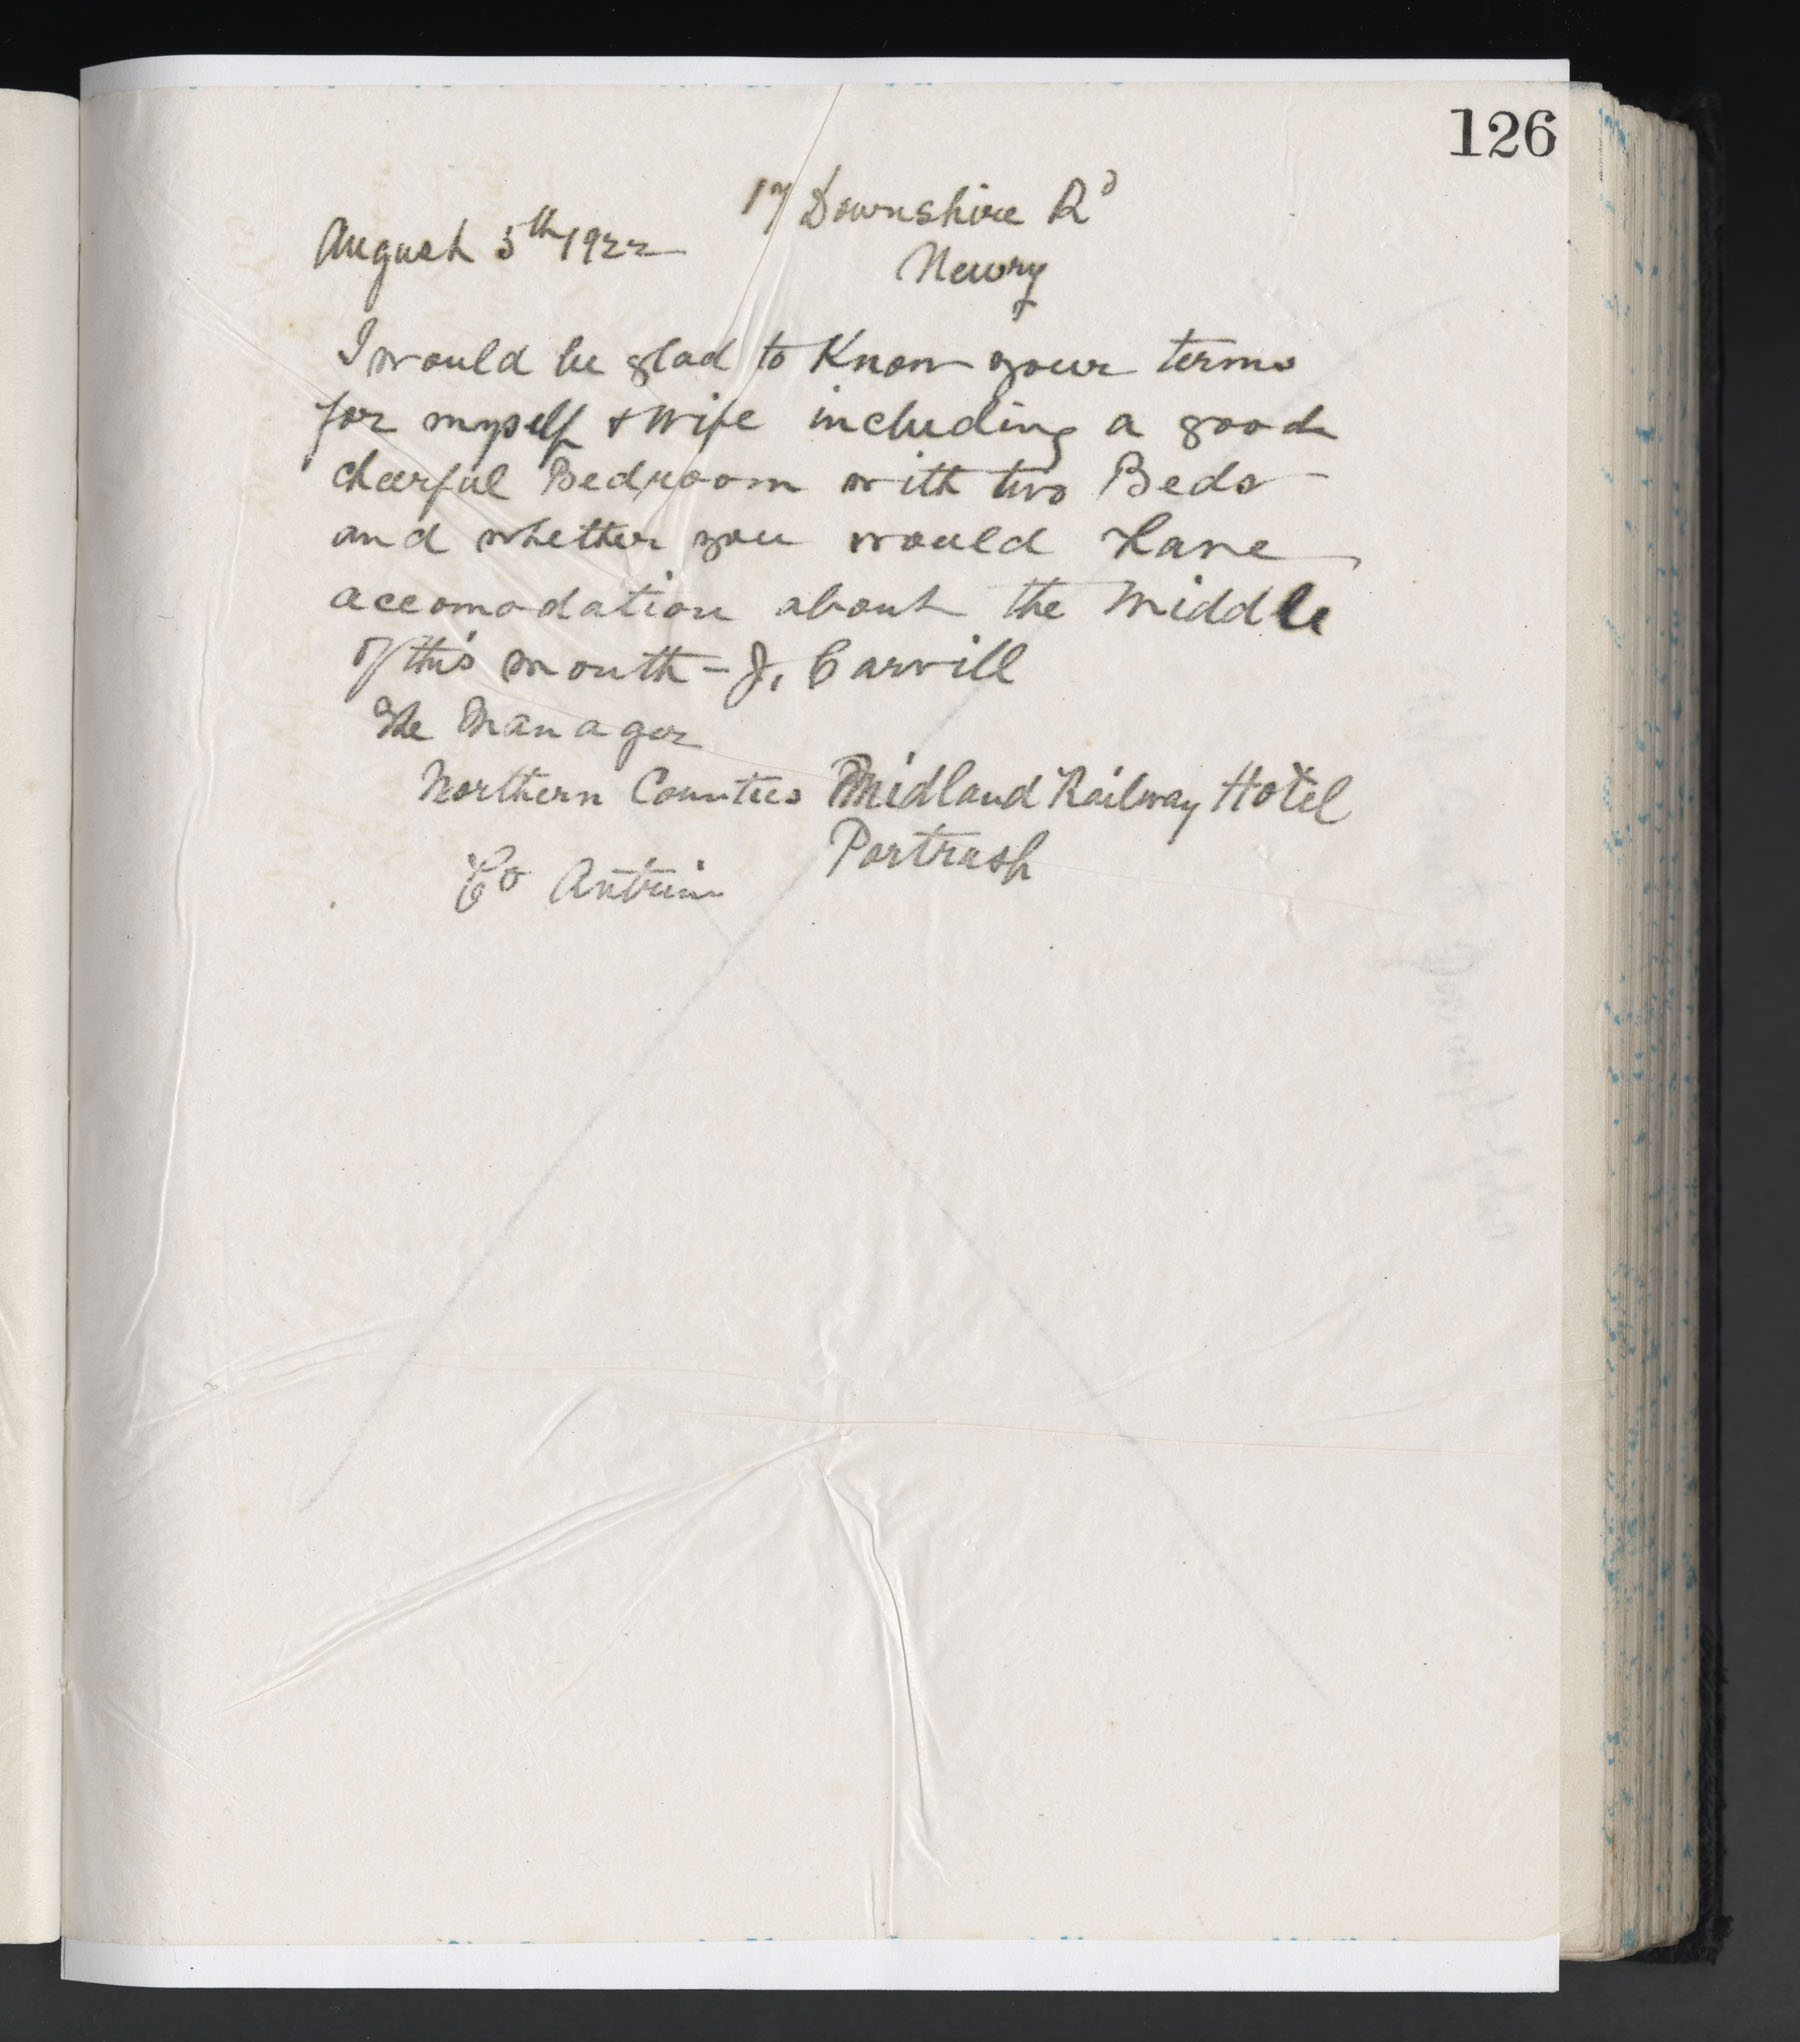 126
17 Downshire Rd
August 5th 1922
Newry
I would be glad to Know your terms
for myself & Wife including a good
cheerful Bedroom with two Beds
and whether you would have
accomodation about the Middle
of this month - J. Carvill
The Manager
Northern Counties Midland Railway Hotel
Portrush
Co Antrim